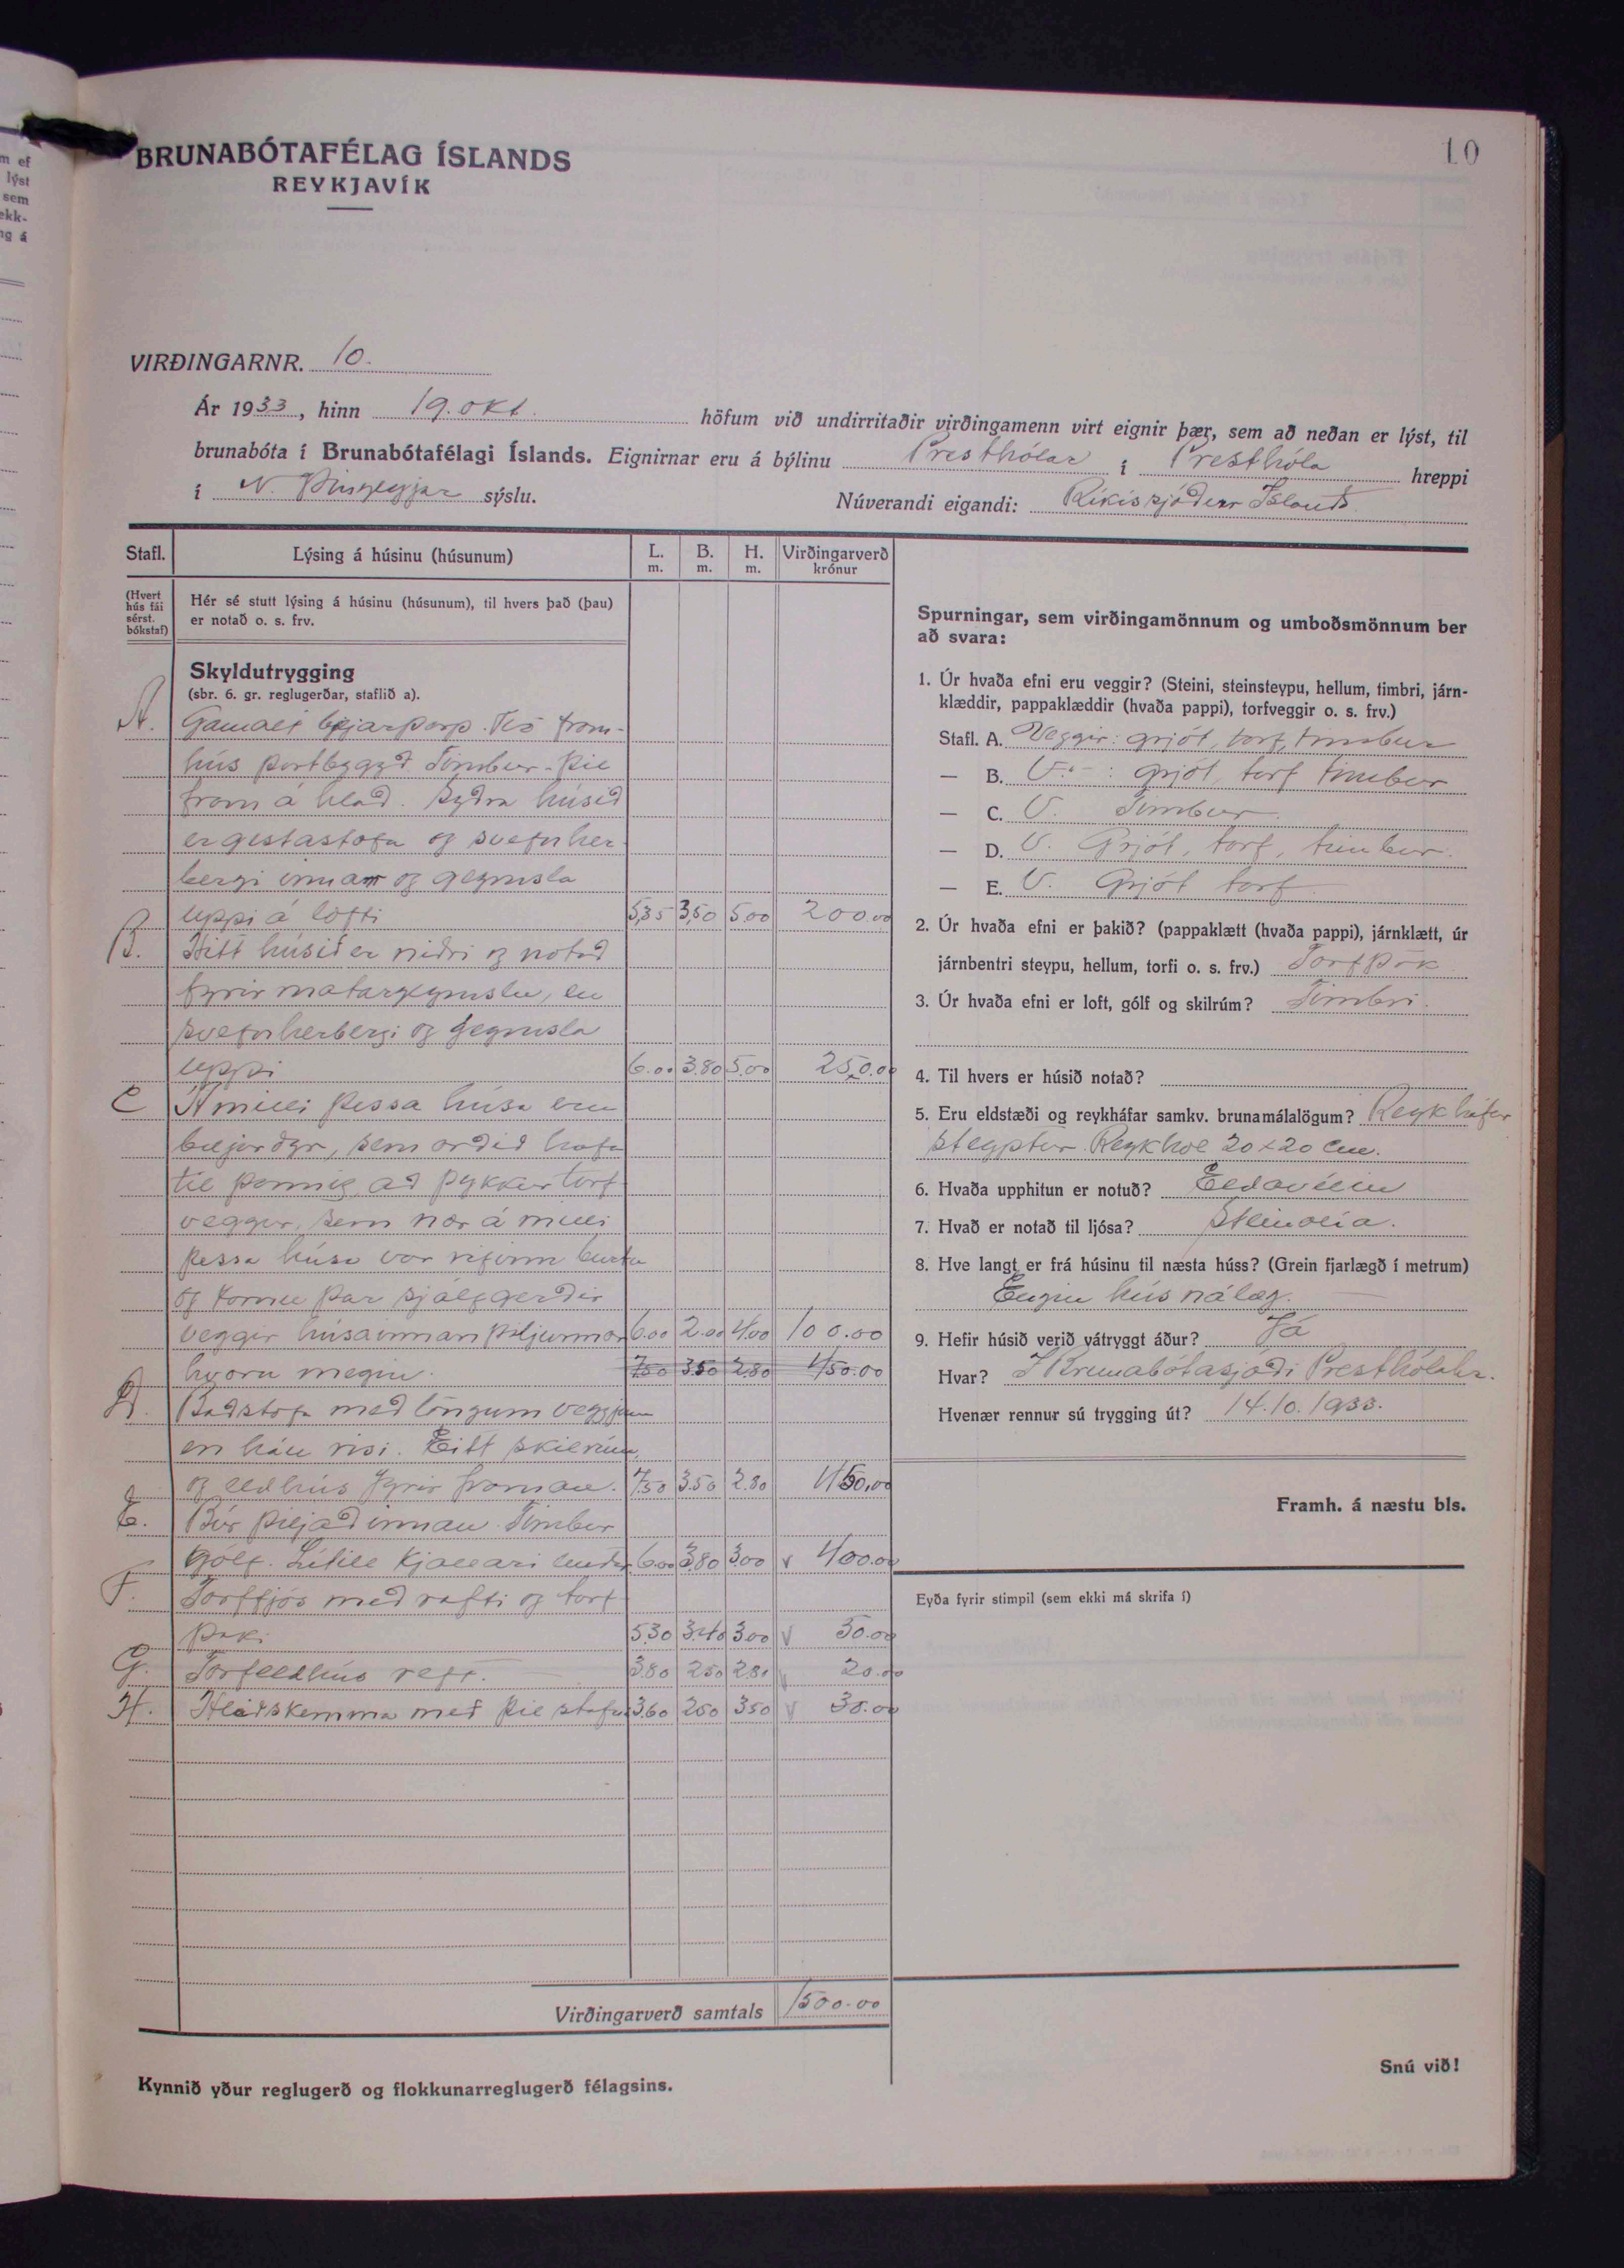 10
BRUNABÓTAFÉLAG ÍSLANDS
REYKJAVÍK
VIRÐINGARNR. 10.
Ár 1933, hinn 19. okt. höfum við undirritaðir virðingamenn virt eignir þær, sem að neðan er lýst, til
brunabóta í Brunabótafélagi Íslands. Eignirnar eru á býlinu Presthólar í Presthóla hreppi
í N. Þingeyjar sýslu. Núverandi eigandi: Ríkissjóður Islands
Stafl. Lýsing á húsinu (húsunum) L. m. B. m. H. m. Virðingarverð krónur
(Hvert hús fái sérst. bókstaf) Hér sé stutt lýsing á húsinu (húsunum), til hvers það (þau)
er notað o. s. frv.
Skyldutrygging
(sbr. 6. gr. reglugerðar, staflið a).
A. Gamalt bæjarþorp. Tvö fram-
hús portbyggð. Timbur-þil
fram á hlað. Syðra húsið
er gestastofa og svefnher-
bergi innar og geymsla
uppi á lofti 5,35 3,50 5.00 200.00
B. Hitt húsið er niðri og notað
fyrir matargeymslu, en
svefnherbergi og geymsla
uppi 6.00 3.80 5.00 250.00
C Á milli þessa húsa eru
bæjardyr, sem orðið hafa
til þannig, að þykkur torf
veggur, sem var á milli
þessa húsa var rifinn burtu
og komu þar sjálfgerðir
veggir húsainnan þiljunnar 6.00 2.00 4.00 100.00
hvoru megin. 7.50 3.50 2.80 450.00
D. Baðstofa með löngum veggjum
en háu risi. Eitt skilrúm,
og eldhús fyrir framan. 7.50 3.50 2.80 450.00
E. Búr þiljað innan. Timbur
gólf. Lítill kjallari undir 6.00 3.80 3.00 v 400.00
F. Torffjós með rafti og torf
þaki 5.30 3.40 3.00 v 50.00
G. Torfeldhús reft. 3.80 2.50 2.80 v 20.00
H. Hlaðskemma með þil stafni 3.60 2.50 3.50 v 30.00
Virðingarverð samtals 1500.00
Kynnið yður reglugerð og flokkunarreglugerð félagsins.
Spurningar, sem virðingamönnum og umboðsmönnum ber
að svara:
1. Úr hvaða efni eru veggir? (Steini, steinsteypu, hellum, timbri, járn-
klæddir, pappaklæddir (hvaða pappi), torfveggir o. s. frv.)
Stafl. A. Veggir: grjót, torf, timbur
— B. V. — : grjót, torf timbur
— C. V. Timbur.
— D. V. Grjót, torf, timbur.
— E. V. Grjót torf.
2. Úr hvaða efni er þakið? (pappaklætt (hvaða pappi), járnklætt, úr
járnbentri steypu, hellum, torfi o. s. frv.) Torfþök
3. Úr hvaða efni er loft, gólf og skilrúm? Timbri.
4. Til hvers er húsið notað?
5. Eru eldstæði og reykháfar samkv. brunamálalögum? Reykháfur
steyptur. Reykhol 20 x 20 cm.
6. Hvaða upphitun er notuð? Eldavélin
7. Hvað er notað til ljósa? Steinolía.
8. Hve langt er frá húsinu til næsta húss? (Grein fjarlægð í metrum)
Engin hús nálæg.
9. Hefir húsið verið vátryggt áður? Já
Hvar? I Brunabótasjóði Presthólahr.
Hvenær rennur sú trygging út? 14.10.1933.
Framh. á næstu bls.
Eyða fyrir stimpil (sem ekki má skrifa í)
Snú við!